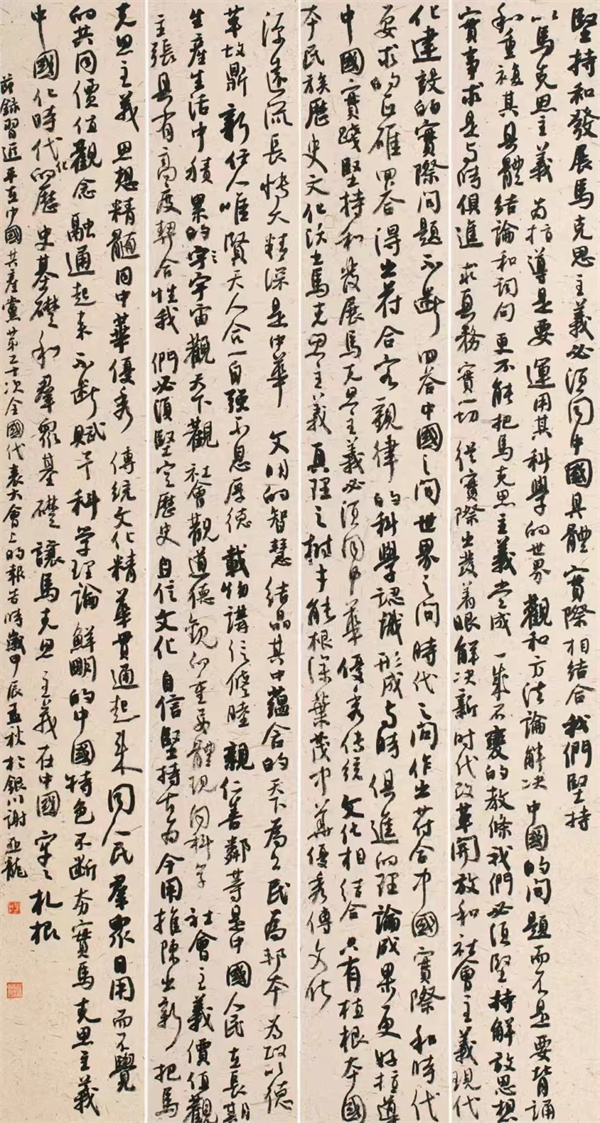 堅持和發展馬克思主義必須同中國具體實際相結合我們堅持
以馬克思主義為指導是要運用其科學的世界觀和方法論解決中國的問題而不是要背誦
和重複其具體結論和詞句更不能把馬克思主義當成一成不變的教條我們必須堅持解放思想
實事求是與時俱進求真務實一切從實際出發着眼解決新時代改革開放和社會主義現代
化建設的實際問題不斷回答中國之問世界之問時代之問作出符合中國實際和時代
要求的正確回答得出符合客觀律的科學認識形成與時俱進的理論成果更好指導
中國實踐堅持和發展馬克思主義必須同中華優秀傳統文化相結合只有植根本國
本民族歷史文化沃土馬克思主義真理之樹才能根深葉茂中華優秀傳文化
源遠流長博大精深是中華文明的智慧結晶其中蘊含的天下為公民為邦本為政以德
革故鼎新任人唯賢天人合一自強不息厚德載物講信修睦親仁善鄰等是中國人民在長期
生產生活中積累的宇宙觀天下觀社會觀道德觀的重要體現同科學社會主義價值觀
主張具有高度契合性我們必須堅定歷史自信文化自信堅持古為今用推陳出新把馬
克思主義思想精髓同中華優秀傳統文化精華貫通起來同人民羣衆日用而不覺
的共同價值觀念融通起來不斷賦予科學理論鮮明的中國特色不斷夯實馬克思主義
中國化時代化的歷史基礎和羣衆基礎讓馬克思主義在中國牢牢扎根
節錄習近平在中國共產黨第二十次全國代表大會上的報告時歲甲辰孟秋於銀川謝亞龍